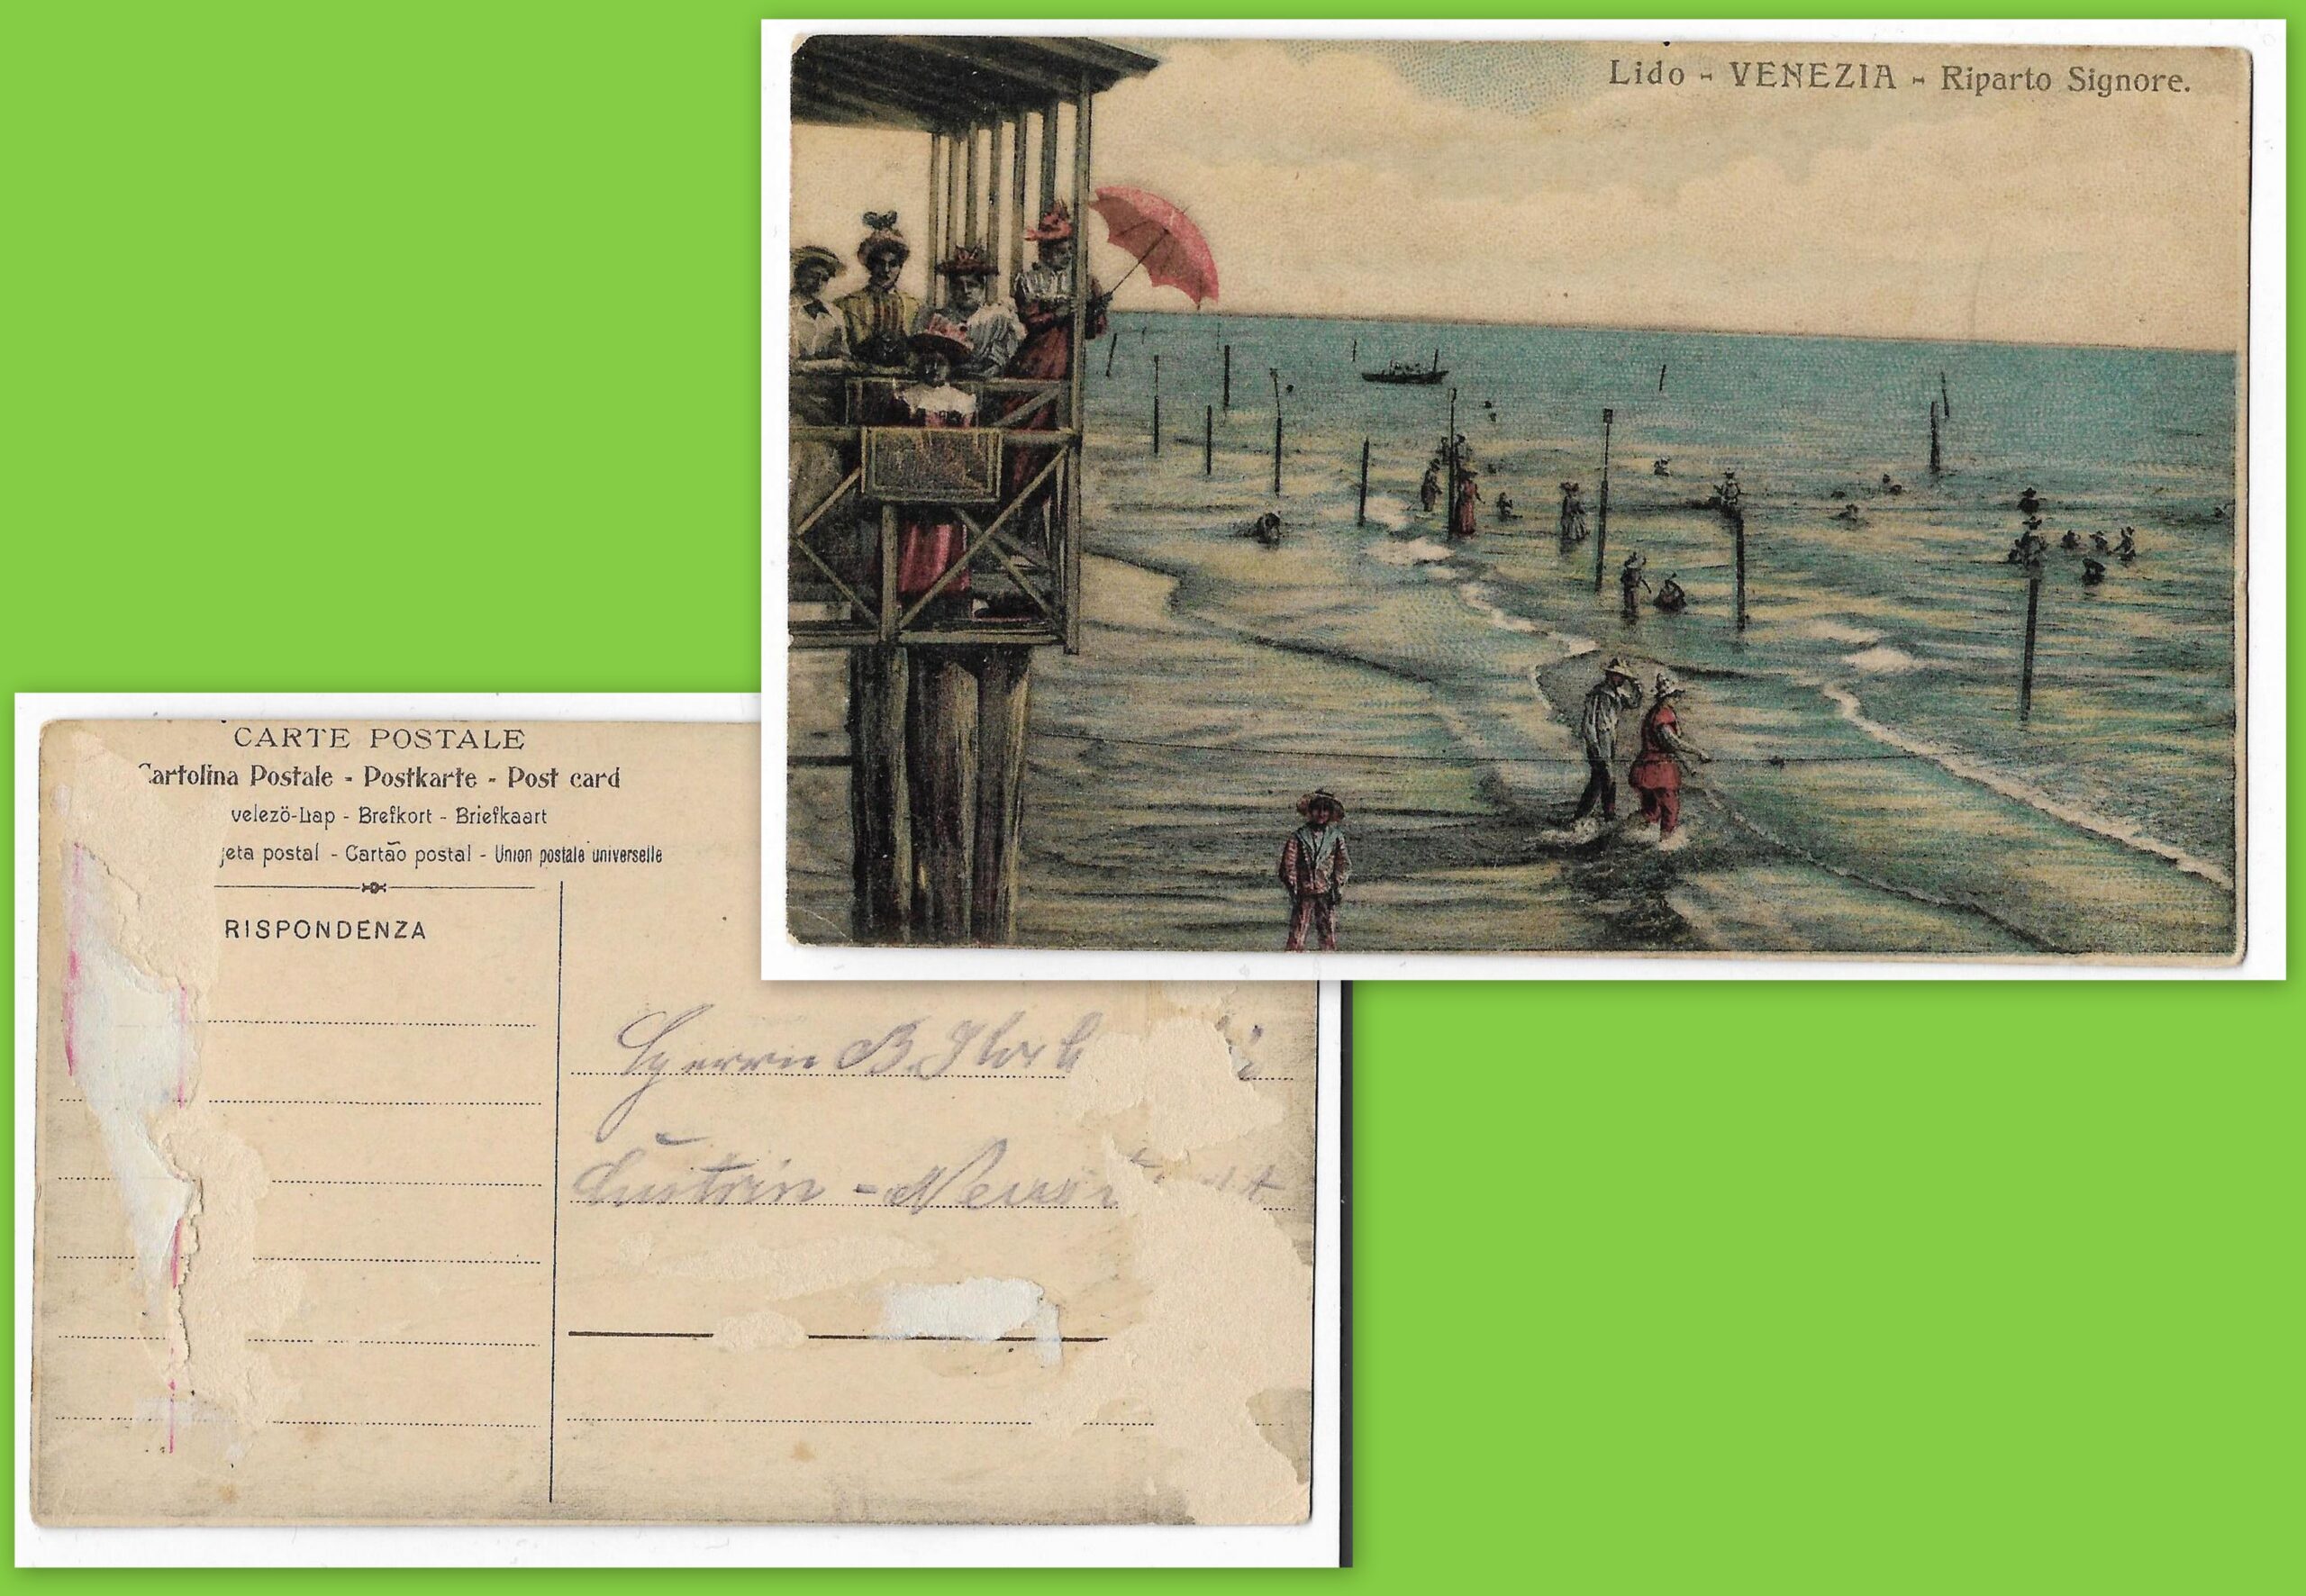 Lido - VENEZIA - Riparto Signore.
CARTE POSTALE
artolina Postale - Postkarte - Post card
velezö-Lap - Brefkort - Briefkaart
jeta postal - Cartão postal - Union postale universelle
RISPONDENZA
Herrn B.
Cüstrin - Neustadt